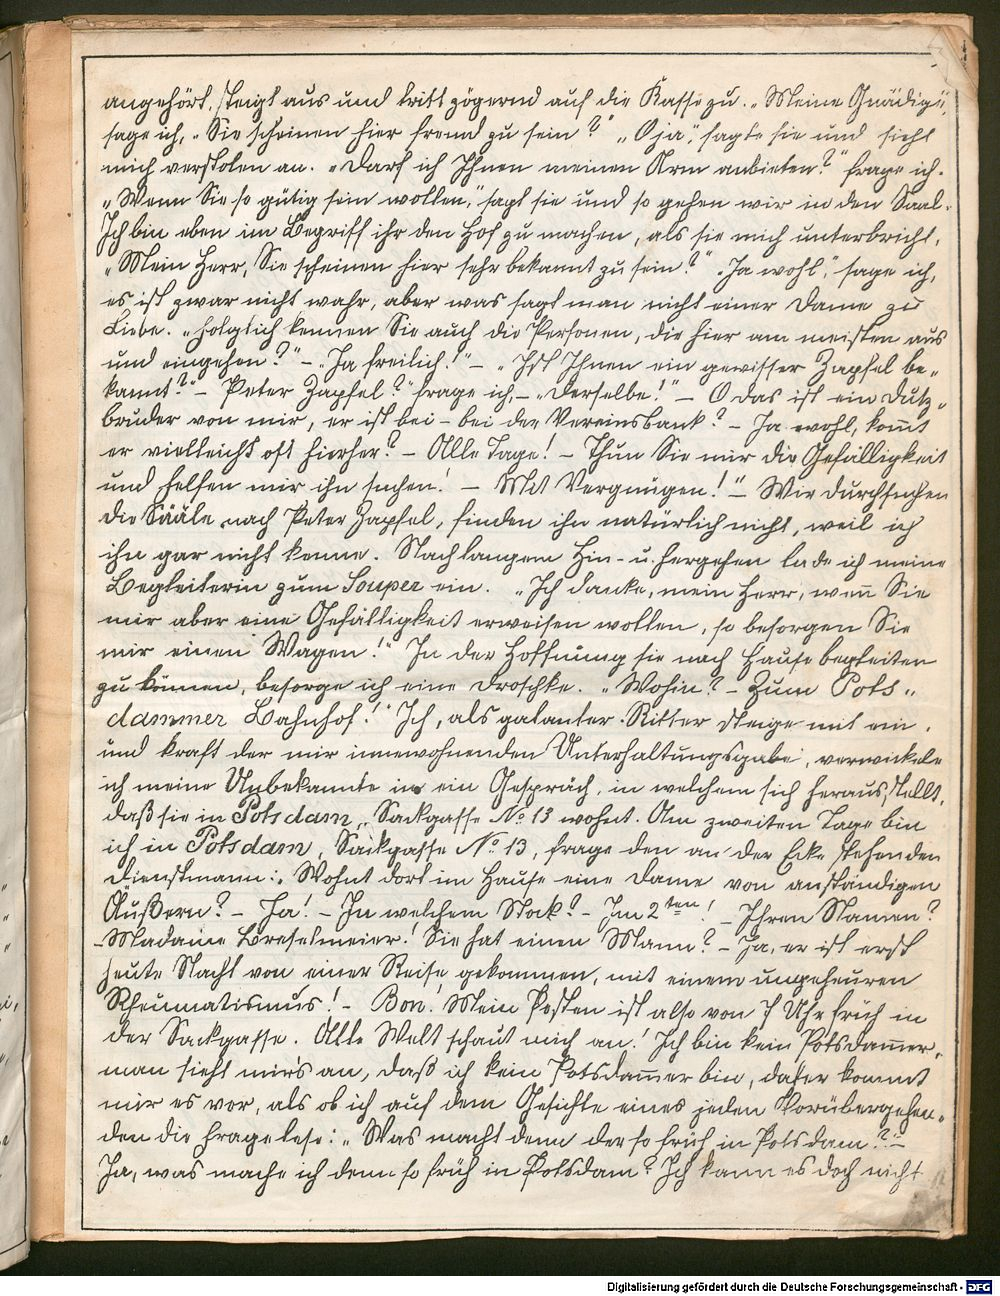 angehört, steigt aus und tritt zögernd auf die Kasse zu. „Meine Gnädige“,
sage ich, „Sie scheinen hier fremd zu sein?“ „O ja“, sagte sie und sieht
mich verstolen an. „Darf ich Ihnen meinen Arm anbieten?“ frage ich.
„Wenn Sie so gütig sein wollen,“ sagt sie und so gehen wir in den Saal.
Ich bin eben im Begriff ihr den Hof zu machen, als sie mich unterbricht,
„Mein Herr, Sie scheinen hier sehr bekannt zu sein?“ „Ja wohl,“ sage ich,
es ist zwar nicht wahr, aber was sagt man nicht einer Dame zu
Liebe. „Folglich kennen Sie auch die Personen, die hier am meisten aus
und eingehen?“ – „Ja freilich!“ – „Ist Ihnen ein gewisser Zapfel be„
kannt?“ – Peter Zapfel?“ frage ich, – „Derselbe!“ – O das ist ein Dutz„
bruder von mir, er ist bei – bei der Vereinsbank? – Ja wohl, kom̄t
er vielleicht oft hierher? – Alle Tage! – Thun Sie mir die Gefälligkeit
und helfen mir ihn suchen! – Mit Vergnügen!“ – Wir durchsuchen
die Sääle nach Peter Zapfel, finden ihn natürlich nicht, weil ich
ihn gar nicht kenne. Nach langem Hin- u. Hergehen lade ich meine
Begleiterin zum Souper ein. „Ich danke, mein Herr, wen̄ Sie
mir aber eine Gefälligkeit erweisen wollen, so besorgen Sie
mir einen Wagen!“ In der Hoffnung sie nach Hause begleiten
zu können, besorge ich eine Droschke. „Wohin? – Zum Pots„
dammer Bahnhof!“ Ich, als galanter Ritter steige mit ein,
und kraft der mir innewohnenden Unterhaltungsgabe, verwickele
ich meine Unbekannte in ein Gespräch, in welchem sich herausstellt,
daß sie in Potsdam, Sackgasse No 13 wohnt. Am zweiten Tage bin
ich in Potsdam, Sackgasse No 13, frage den an der Ecke stehenden
Dienstmann: „Wohnt dort im Hause eine Dame von anständigen
Äußern? – Ja! – In welchem Stock? – Im 2ten! – Ihren Namen?
– Madame Breselmeier! Sie hat einen Mann? – Ja, er ist erst
heute Nacht von einer Reise gekommen, mit einem ungeheuren
Rheumatismus! – Bon! Mein Posten ist also von 7 Uhr früh in
der Sackgasse. Alle Welt schaut mich an! Ich bin kein Potsdam̄er„
man sieht mir's an, daß ich kein Potsdam̄er bin, daher kommt
mir es vor, als ob ich auf dem Gesichte eines jeden Vorübergehen„
den die Frage lese: „Was macht denn der so früh in Potsdam?“ –
Ja, was mache ich denn so früh in Potsdam? Ich kann es doch nicht
Digitalisierung gefördert durch die Deutsche Forschungsgemeinschaft - DFG